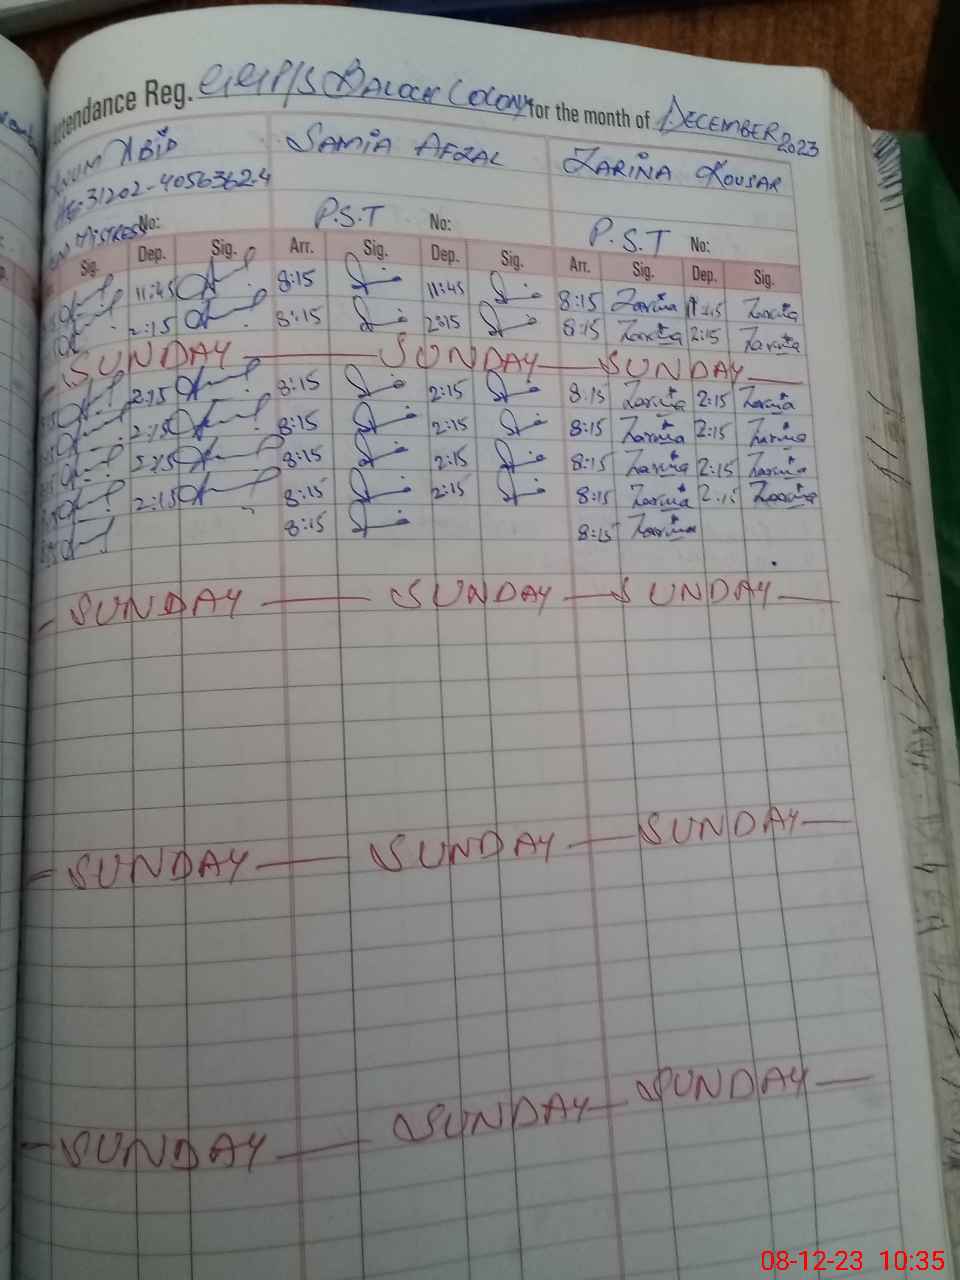 Attendance Reg. GGP/S BALOCH COLONY for the month of DECEMBER 2023
ANUM ABID SAMIA AFZAL ZARINA KOUSAR
31202-4056362-4
HEAD MISTRESS No: P.S.T No: P.S.T No:
Sig. Dep. Sig. Arr. Sig. Dep. Sig. Arr. Sig. Dep. Sig.
11:45 8:15 11:45 8:15 Zarina 11:45 Zarina
2:15 8:15 2:15 8:15 Zarina 2:15 Zarina
SUNDAY SUNDAY SUNDAY
2:15 8:15 2:15 8:15 Zarina 2:15 Zarina
2:15 8:15 2:15 8:15 Zarina 2:15 Zarina
2:15 8:15 2:15 8:15 Zarina 2:15 Zarina
2:15 8:15 2:15 8:15 Zarina 2:15 Zarina
8:15 8:15 Zarina
SUNDAY SUNDAY SUNDAY
SUNDAY SUNDAY SUNDAY
SUNDAY SUNDAY SUNDAY
08-12-23 10:35